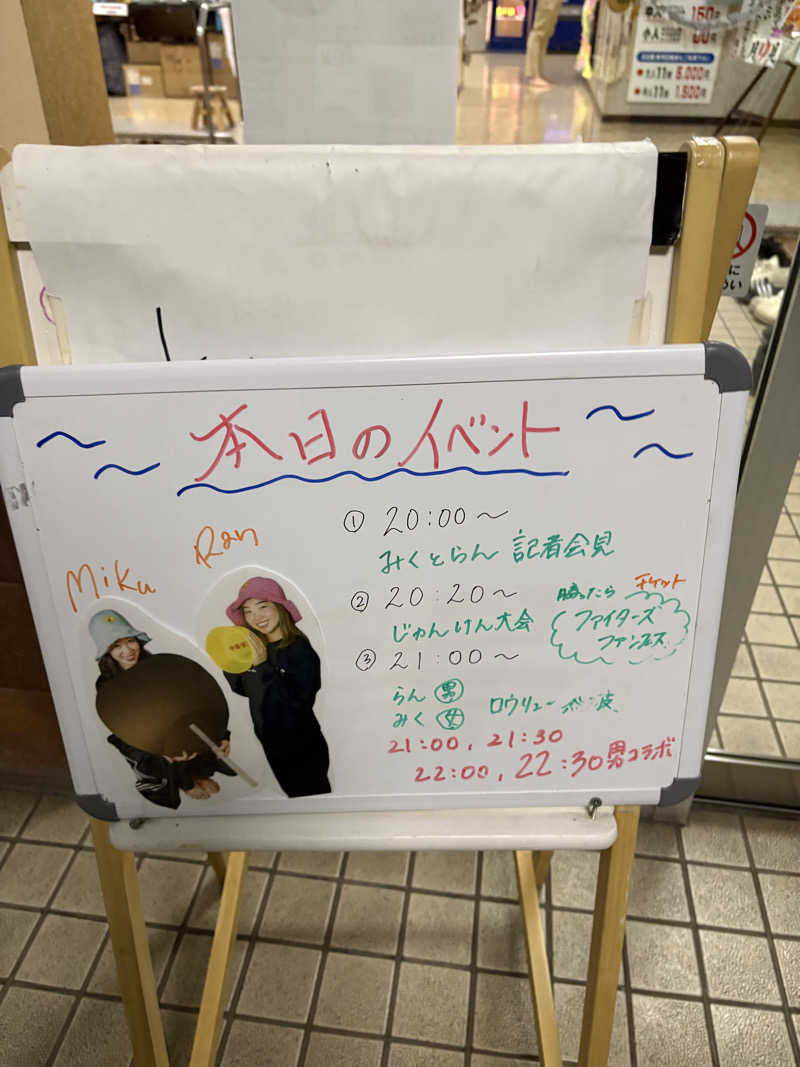 本日のイベント
Miku
Ran
① 20:00〜
みくとらん 記者会見
② 20:20〜
じゃんけん大会
勝ったら
チケット
ファイターズ
ファンフェス
③ 21:00〜
らん 男
みく 女
ロウリュー 熱波
21:00, 21:30
22:00, 22:30 男コラボ
小人
大人11枚 5,000円
小人11枚 1,500円